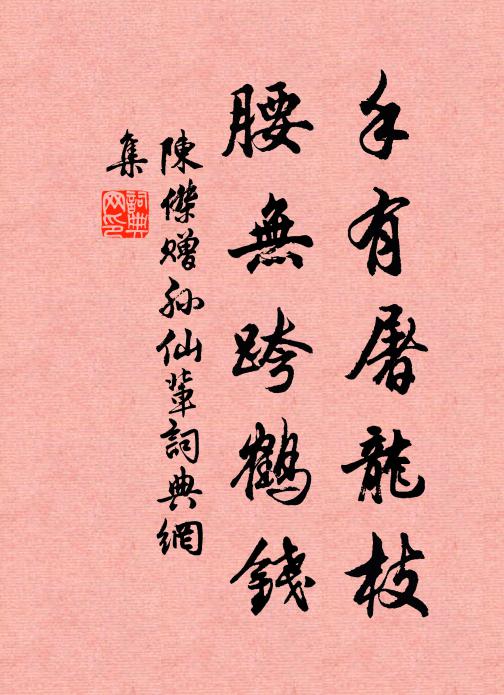 手有屠龍枝
腰無跨鶴錢
陳傑贈孙仙輩詞典網
集
詞典
网印